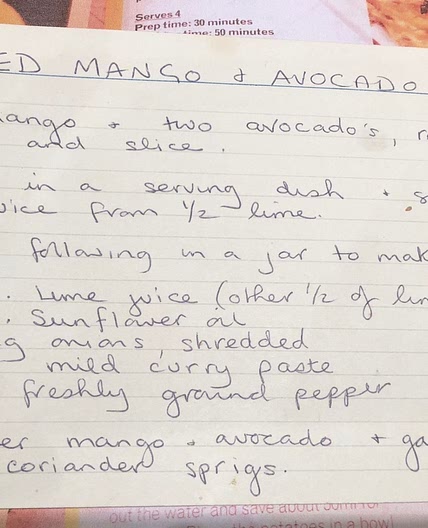 Serves 4
Prep time: 30 minutes
time: 50 minutes
ED MANGO + AVOCADO
ango + two avocado's, r
and slice.
in a serving dish + s
uice from 1/2 lime.
following in a jar to mak
. Lime juice (other 1/2 of lim
. Sunflower oil
g onions, shredded
mild curry paste
freshly ground pepper
er mango + avocado + ga
coriander sprigs.
out the water and save about 50ml for
otatoes in a bowl